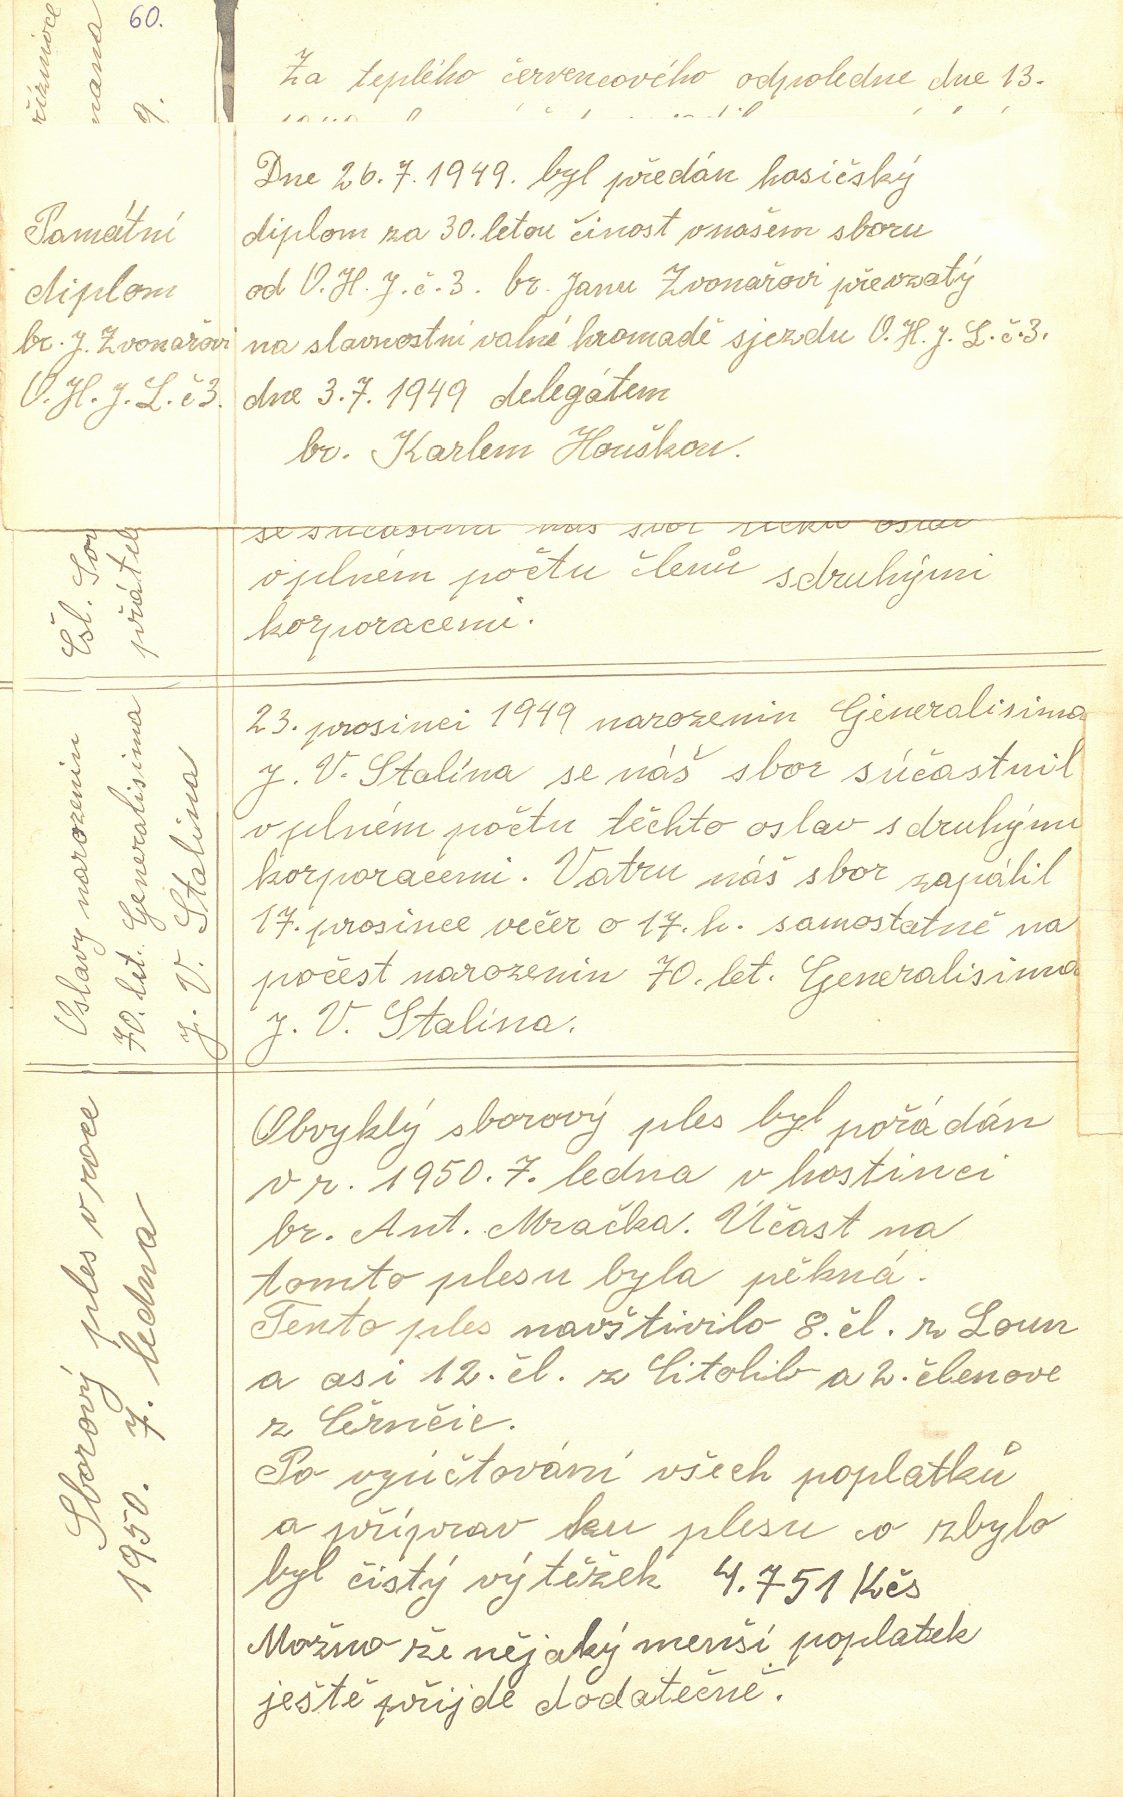 60.
Za teplého červencového odpoledne dne 13.
Památní
diplom
br. J. Zvonařovi
O. H. J. L. č 3.
Dne 26. 7. 1949. byl předán hasičský
diplom za 30. letou činost v našem sboru
od O. H. J. č. 3. br. Janu Zvonařovi převzatý
na slavnostní valné hromadě sjezdu O. H. J. L. č. 3.
dne 3. 7. 1949 delegátem
br. Karlem Houškou.
Čsl. Sov
přátel
v plném počtu členů s druhými
korporacemi.
Oslavy narozenin
70. let. Generalisima
J. V. Stalina
23. prosinci 1949 narozenin Generalisima
J. V. Stalina se náš sbor súčastnil
v plném počtu těchto oslav s druhými
korporacemi. Vatru náš sbor zapálil
17. prosince večer o 17. h. samostatně na
počest narozenin 70. let. Generalisima
J. V. Stalina.
Sborový ples v roce
1950. 7. ledna
Obvyklý sborový ples byl pořádán
v r. 1950. 7. ledna v hostinci
br. Ant. Mračka. Účast na
tomto plesu byla pěkná.
Tento ples navštivilo 8. čl. z Loun
a asi 12. čl. z Citolib a 2. členove
z Černčic.
Po vyúčtování všech poplatků
a příprav ku plesu co zbylo
byl čistý výtěžek 4.751 Kčs
Možno že nějaký menší poplatek
ještě přijde dodatečně.